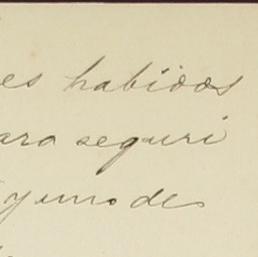 es habidos
ara seguri
y uno de